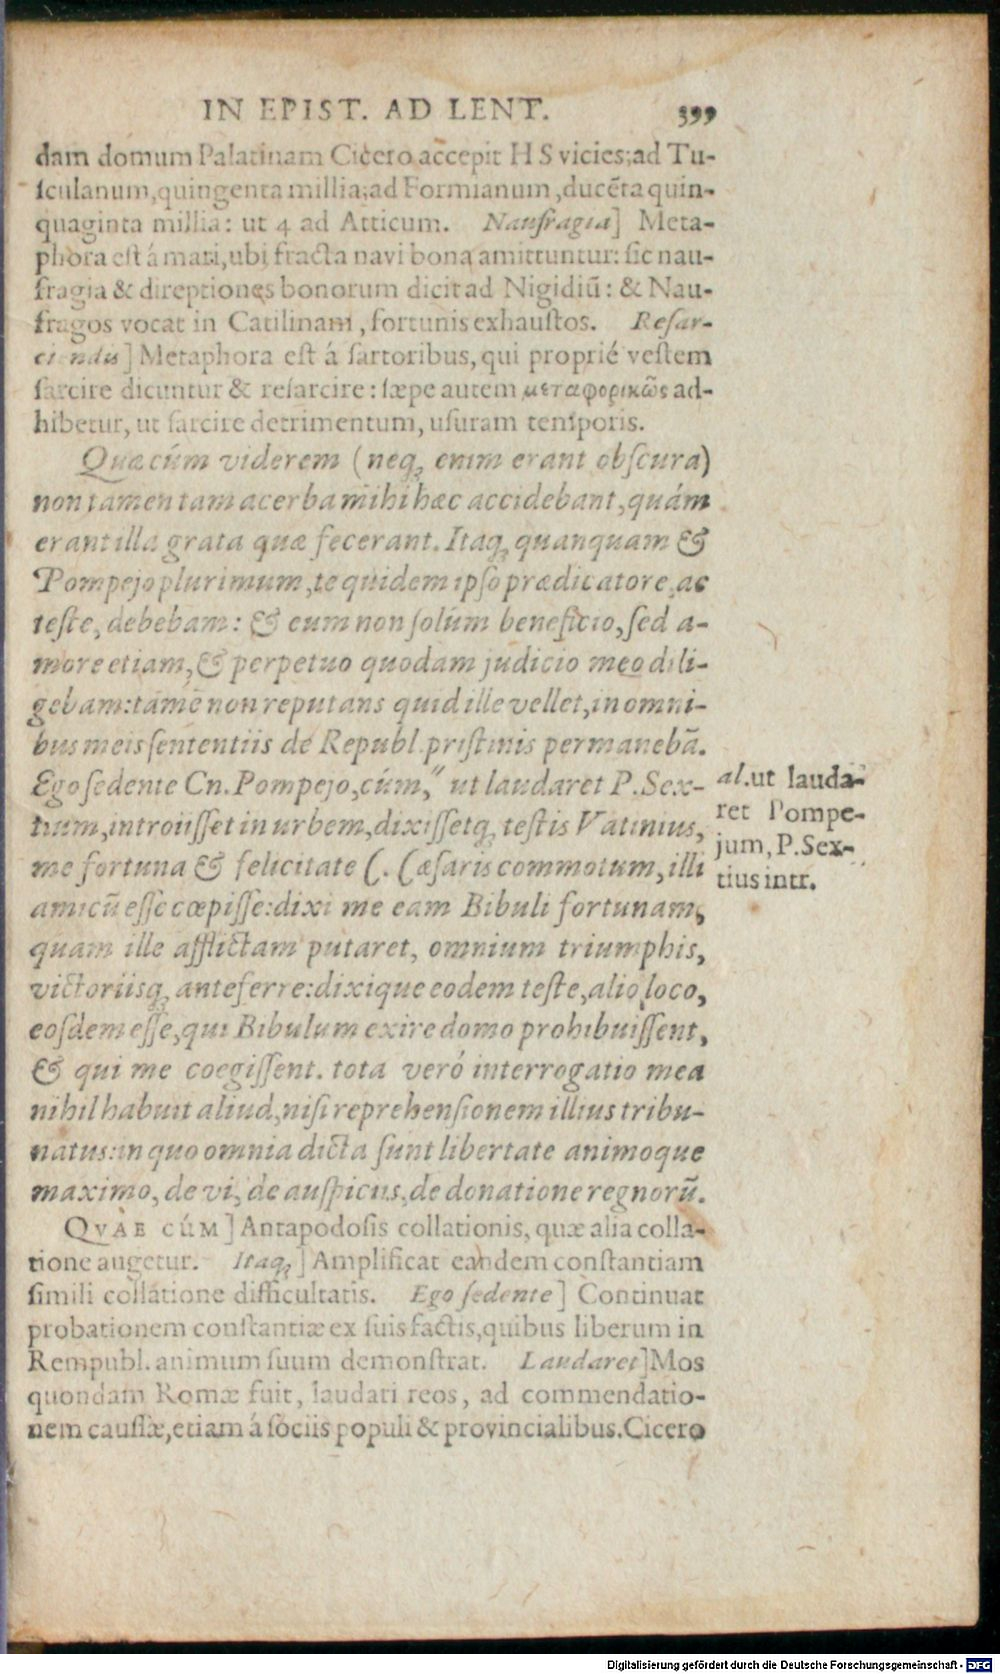 IN EPIST. AD LENT. 399
dam domum Palatinam Cicero accepit HS vicies; ad Tu-
ſculanum, quingenta millia; ad Formianum, ducẽta quin-
quaginta millia: ut 4 ad Atticum. Naufragia] Meta-
phora eſt á mari, ubi fracta navi bona amittuntur: ſic nau-
fragia & direptiones bonorum dicit ad Nigidiũ: & Nau-
fragos vocat in Catilinam, fortunis exhauſtos. Reſar-
ciendis] Metaphora eſt á ſartoribus, qui proprié veſtem
ſarcire dicuntur & reſarcire: ſæpe autem μεταφορικῶς ad-
hibetur, ut ſarcire detrimentum, uſuram temporis.
Quæ cúm viderem (neq; enim erant obſcura)
non tamen tam acerba mihi hæc accidebant, quám
erant illa grata quæ fecerant. Itaq; quanquam &
Pompejo plurimum, te quidem ipſo prædicatore, ac
teſte, debebam: & eum non ſolúm beneficio, ſed a-
more etiam, & perpetuo quodam judicio meo dili-
gebam: tamẽ non reputans quid ille vellet, in omni-
bus meis ſententiis de Republ. priſtinis permanebã.
Ego ſedente Cn. Pompejo, cúm, " ut laudaret P. Sex-
tium, introiiſſet in urbem, dixiſſetq; teſtis Vatinius,
me fortuna & felicitate C. Cæſaris commotum, illi
amicũ eſſe cœpiſſe: dixi me eam Bibuli fortunam,
quam ille afflictam putaret, omnium triumphis,
victoriisq; anteferre: dixique eodem teſte, alio loco,
eoſdem eſſe, qui Bibulum exire domo prohibuiſſent,
& qui me coegiſſent. tota veró interrogatio mea
nihil habuit aliud, niſi reprehenſionem illius tribu-
natus: in quo omnia dicta ſunt libertate animoque
maximo, de vi, de auſpiciis, de donatione regnorũ.
al. ut lauda-
ret Pompe-
jum, P. Sex-
tius intr.
QVAE CÚM] Antapodoſis collationis, quæ alia colla-
tione augetur. Itaq;] Amplificat eandem conſtantiam
ſimili collatione difficultatis. Ego ſedente] Continuat
probationem conſtantiæ ex ſuis factis, quibus liberum in
Rempubl. animum ſuum demonſtrat. Laudaret] Mos
quondam Romæ fuit, laudati reos, ad commendatio-
nem cauſſæ, etiam á ſociis populi & provincialibus. Cicero
Digitalisierung gefördert durch die Deutsche Forschungsgemeinschaft - DFG